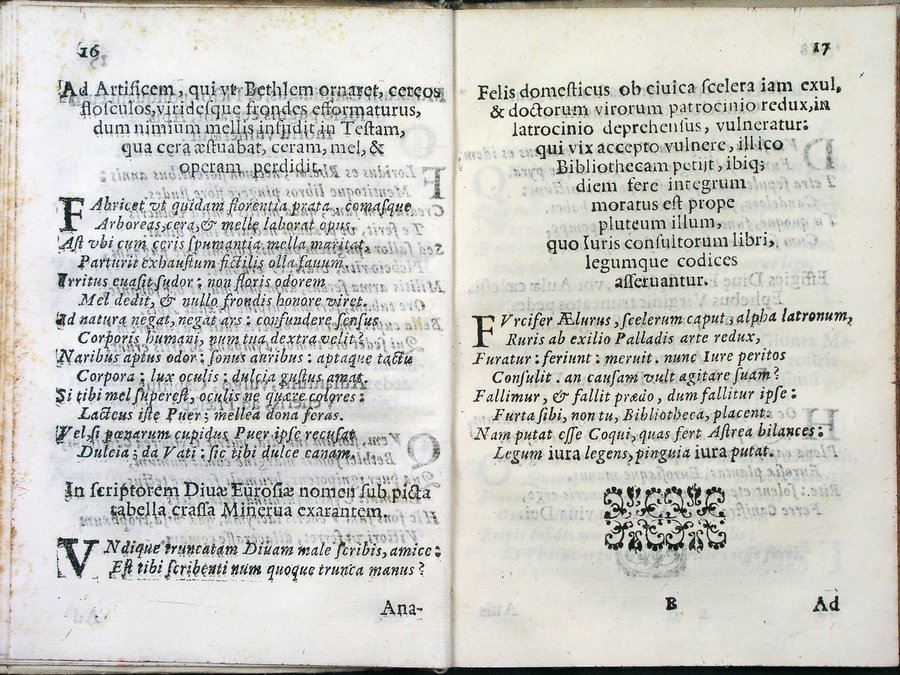 16
Ad Artificem, qui vt Bethlem ornaret, cereos
flosculos, viridesque frondes efformaturus,
dum nimium mellis infudit in Testam,
qua cera æstuabat, ceram, mel, &
operam perdidit.
FAbricet vt quidam florentia prata, comasque
Arboreas, cera, & melle laborat opus.
Ast vbi cum ceris spumantia mella maritat,
Parturit exhaustum fictilis olla fauum.
Irritus euasit sudor: non floris odorem
Mel dedit, & nullo frondis honore viret.
Ad natura negat, negat ars: confundere sensus
Corporis humani, num tua dextra velit?
Naribus aptus odor: sonus auribus: aptaque tactu
Corpora: lux oculis: dulcia gustus amat.
Si tibi mel superest, oculis ne quære colores:
Lacteus iste Puer; mellea dona feras.
Vel si pœnarum cupidus Puer ipse recusat
Dulcia; da Vati: sic tibi dulce canam.
In scriptorem Diuæ Eurosiæ nomen sub picta
tabella crassa Minerua exarantem.
VNdique truncatam Diuam male scribis, amice:
Est tibi scribenti num quoque trunca manus?
Ana-
17
Felis domesticus ob ciuica scelera iam exul,
& doctorum virorum patrocinio redux, in
latrocinio deprehensus, vulneratur:
qui vix accepto vulnere, illico
Bibliothecam petijt, ibiq;
diem fere integrum
moratus est prope
pluteum illum,
quo Iuris consultorum libri,
legumque codices
asseruantur.
FVrcifer Ælurus, scelerum caput, alpha latronum,
Ruris ab exilio Palladis arte redux,
Furatur: feriunt: meruit. nunc Iure peritos
Consulit. an causam vult agitare suam?
Fallimur, & fallit prædo, dum fallitur ipse:
Furta sibi, non tu, Bibliotheca, placent.
Nam putat esse Coqui, quas fert Astrea bilances:
Legum iura legens, pinguia iura putat.
B
Ad